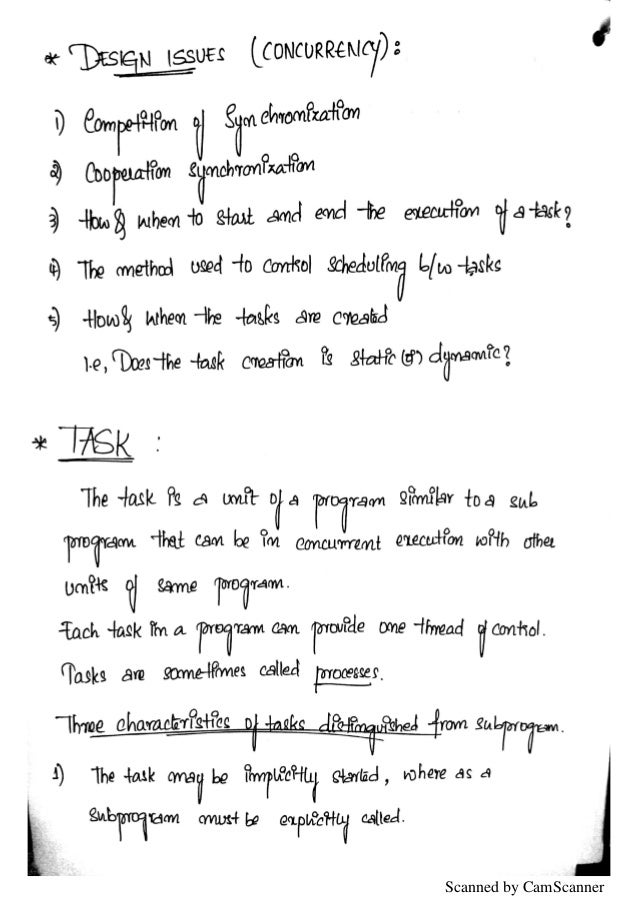 * DESIGN ISSUES (CONCURRENCY):
1) Competition of Synchronization
2) Cooperation synchronization
3) How & when to start and end the execution of a task?
4) The method used to control scheduling b/w tasks
5) How & when the tasks are created
i.e, Does the task creation is static (or) dynamic?
* TASK :
The task is a unit of a program similar to a sub
program that can be in concurrent execution with other
units of same program.
Each task in a program can provide one thread of control.
Tasks are sometimes called processes.
Three characteristics of tasks distinguished from subprogram.
1) The task may be implicitly started, where as a
subprogram must be explicitly called.
Scanned by CamScanner